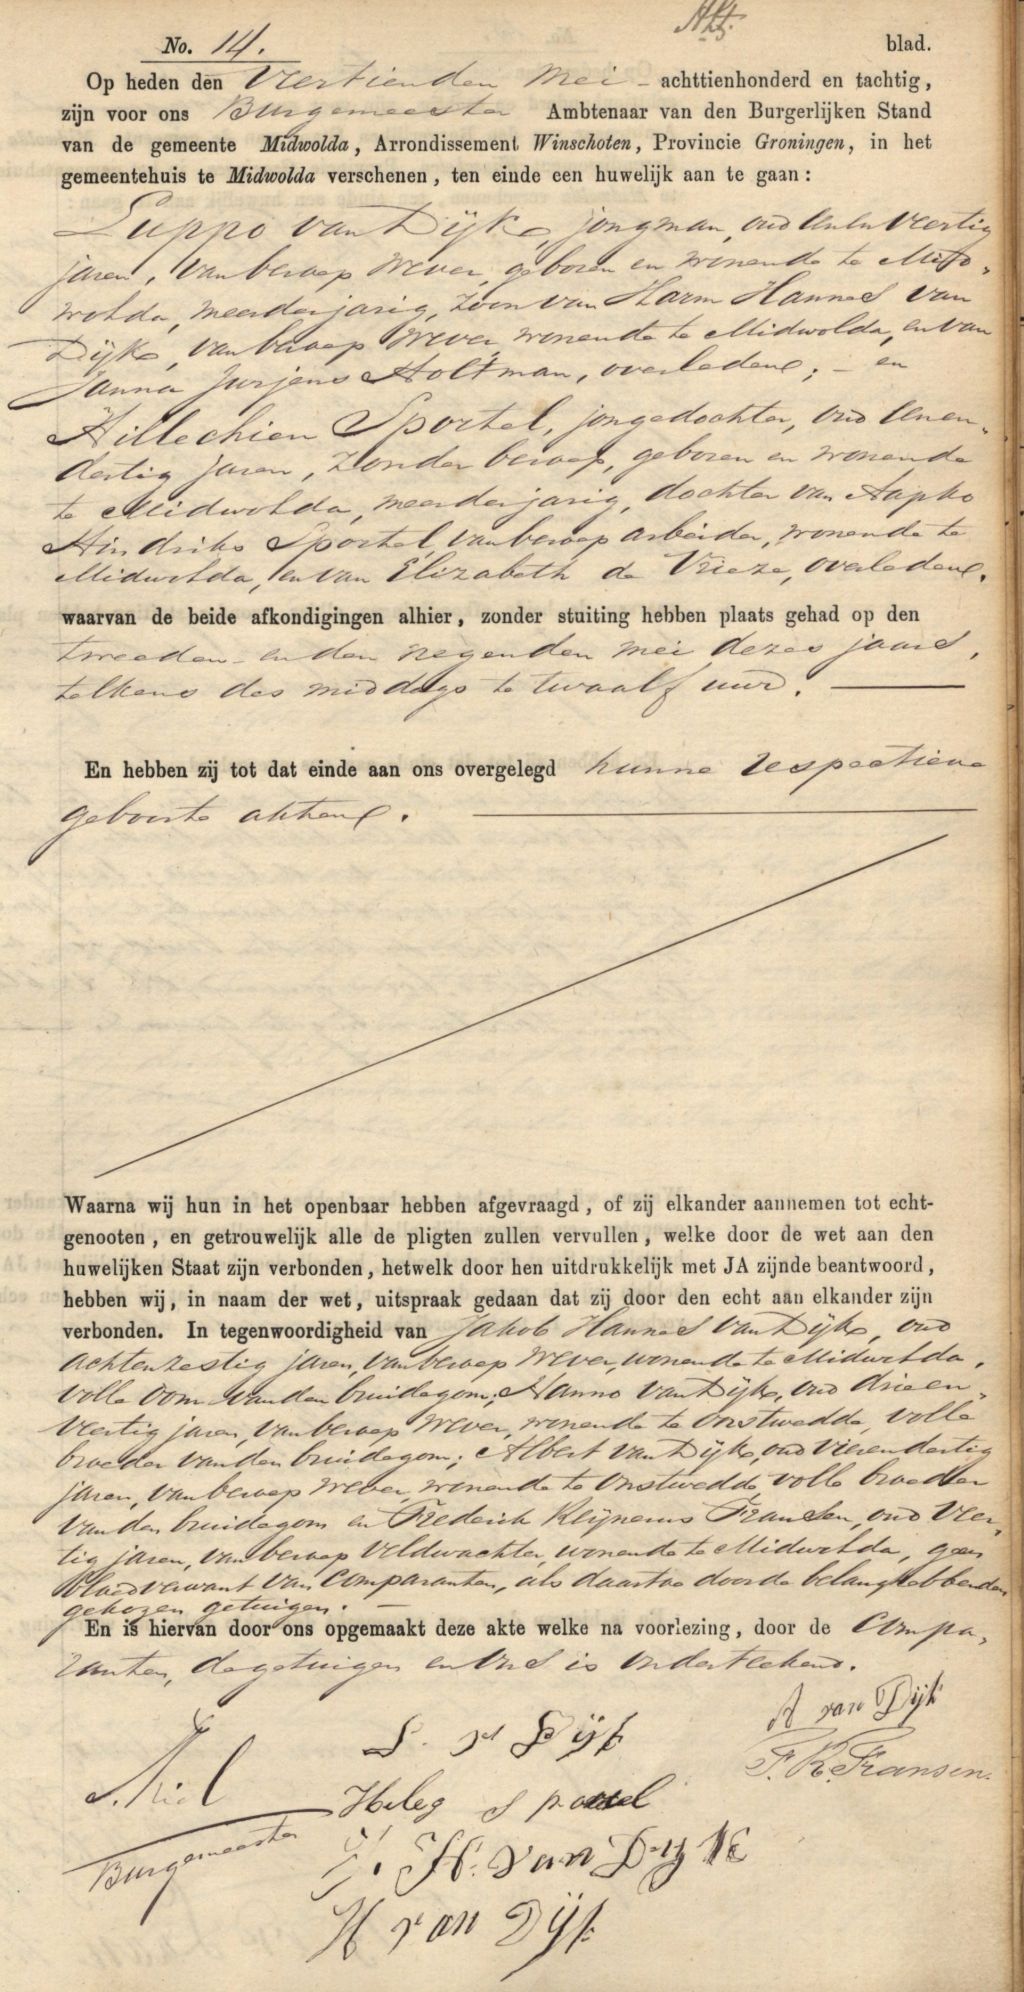 No. 14.
blad.
Op heden den Veertienden Mei - achttienhonderd en tachtig,
zijn voor ons Burgemeester Ambtenaar van den Burgerlijken Stand
van de gemeente Midwolda, Arrondissement Winschoten, Provincie Groningen, in het
gemeentehuis te Midwolda verschenen, ten einde een huwelijk aan te gaan:
Luppo van Dijk, jongman, oud eenenveertig
jaren, van beroep wever, geboren en wonende te Mid-
wolda, meerderjarig, zoon van Harm Hannes van
Dijk, van beroep wever, wonende te Midwolda, en van
Janna Jurjens Holtman, overledene; - en
Hillechien Sportel, jongedochter, oud eenen-
dertig jaren, zonder beroep, geboren en wonende
te Midwolda, meerderjarig, dochter van Aapko
Hindriks Sportel, van beroep arbeider, wonende te
Midwolda, en van Elizabeth de Vrieze, overledene.
waarvan de beide afkondigingen alhier, zonder stuiting hebben plaats gehad op den
tweeden en den negenden mei dezes jaars,
telkens des middags te twaalf uur.
En hebben zij tot dat einde aan ons overgelegd hunne respectieve
geboorte akten.
Waarna wij hun in het openbaar hebben afgevraagd, of zij elkander aannemen tot echt-
genooten, en getrouwelijk alle de pligten zullen vervullen, welke door de wet aan den
huwelijken Staat zijn verbonden, hetwelk door hen uitdrukkelijk met JA zijnde beantwoord,
hebben wij, in naam der wet, uitspraak gedaan dat zij door den echt aan elkander zijn
verbonden. In tegenwoordigheid van Jakob Hannes van Dijk, oud
achtenzestig jaren, van beroep wever, wonende te Midwolda,
volle oom van den bruidegom; Hanno van Dijk, oud drieen-
veertig jaren, van beroep wever, wonende te Onstwedde, volle
broeder van den bruidegom; Albert van Dijk, oud vierendertig
jaren, van beroep wever, wonende te Onstwedde, volle broeder
van den bruidegom en Frederik Reijnerus Fransen, oud veer-
tig jaren, van beroep veldwachter, wonende te Midwolda, geen
bloedverwant van comparanten, als daartoe door de belanghebbenden
gekozen getuigen. -
En is hiervan door ons opgemaakt deze akte welke na voorlezing, door de Compa-
ranten, de getuigen en ons is onderteekend.
A van Dijk
L. v Dijk
F. R. Fransen.
Burgemeester
J. H. van Dijk
H van Dijk